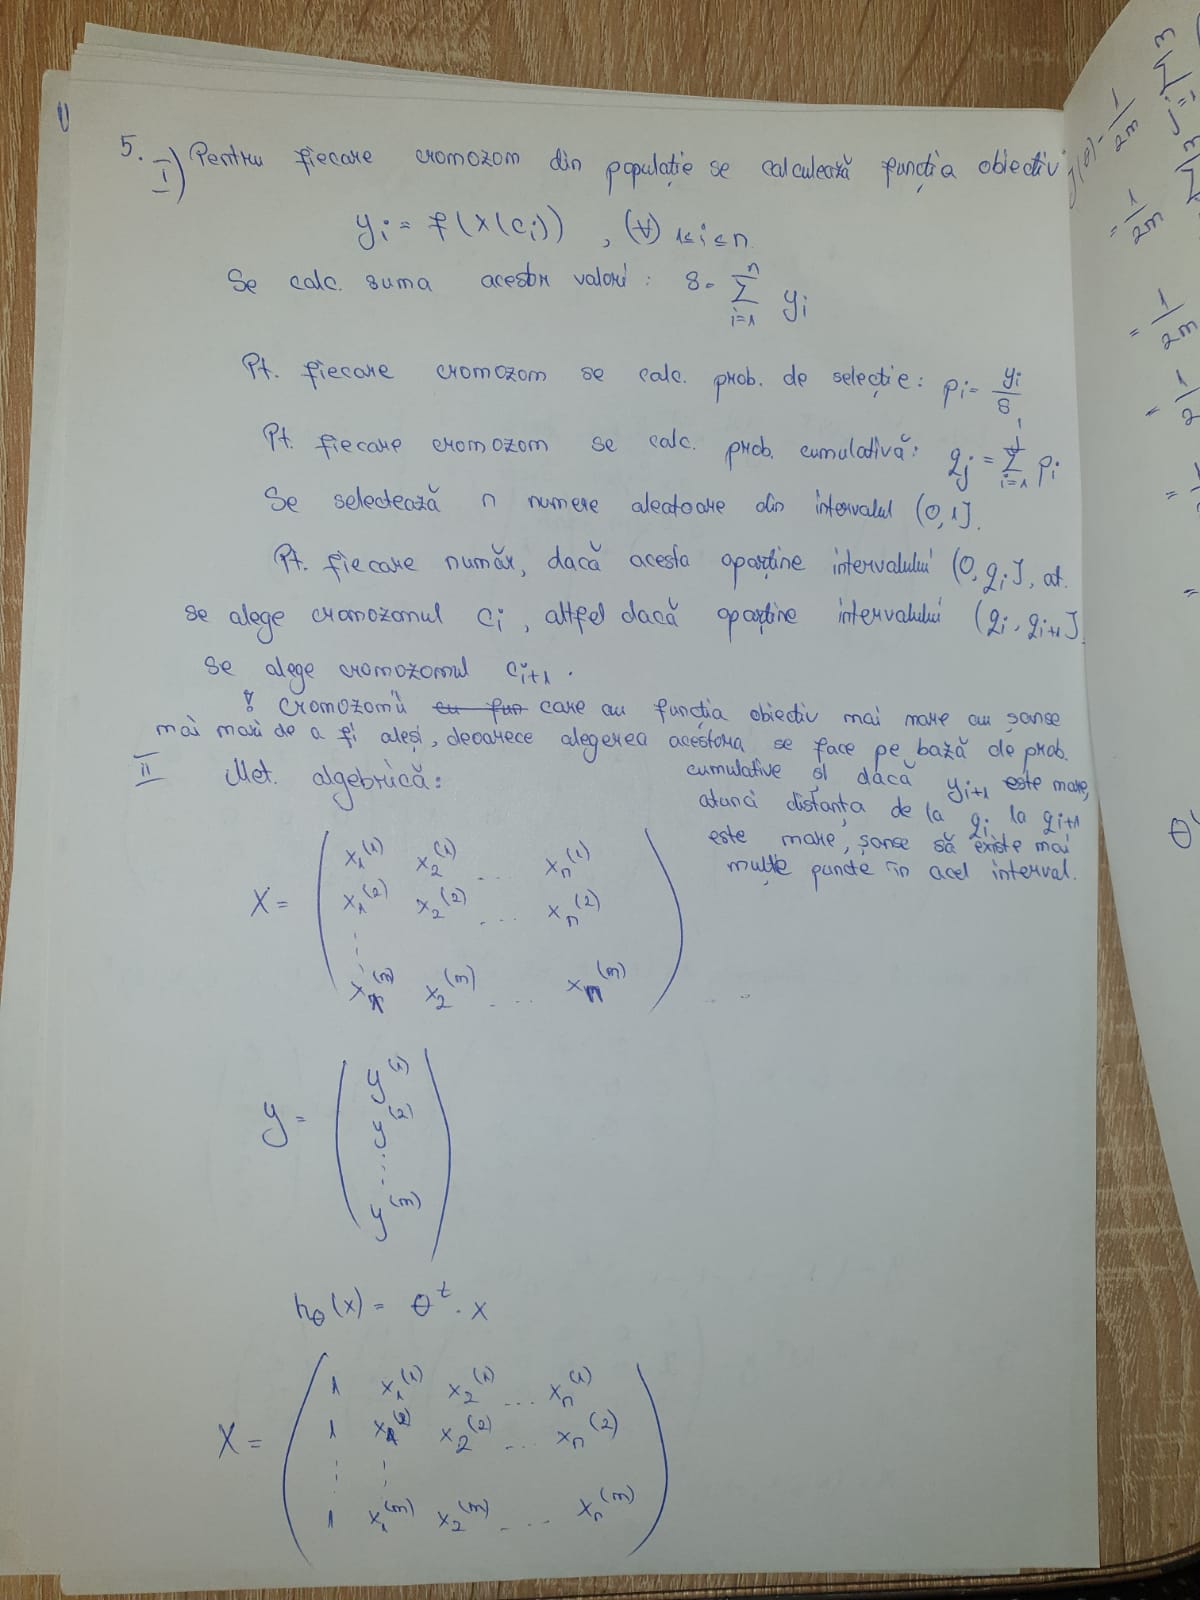 5.
I) Pentru fiecare cromozom din populație se calculează funcția obiectiv
yᵢ = f(X(cᵢ)) , (∀) 1≤i≤n
Se calc. suma acestor valori : S = ∑ᵢ₌₁ⁿ yᵢ
Pt. fiecare cromozom se calc. prob. de selecție: pᵢ = yᵢ/S
Pt. fiecare cromozom se calc. prob. cumulativă: qⱼ = ∑ᵢ₌₁ʲ pᵢ
Se selectează n numere aleatoare din intervalul (0,1].
Pt. fiecare număr, dacă acesta aparține intervalului (0, qᵢ], at.
se alege cromozomul cᵢ, altfel dacă aparține intervalului (qᵢ, qᵢ₊₁]
se alege cromozomul cᵢ₊₁.
! Cromozomii cu fun care au funcția obiectiv mai mare au șanse
mai mari de a fi aleși, deoarece alegerea acestora se face pe bază de prob.
cumulative și dacă yᵢ₊₁ este mare,
atunci distanța de la qᵢ la qᵢ₊₁
este mare, șanse să existe mai
multe puncte în acel interval.
II Met. algebrică:
x₁⁽¹⁾ x₂⁽¹⁾ ... xₙ⁽¹⁾
X = x₁⁽²⁾ x₂⁽²⁾ ... xₙ⁽²⁾
⋮
x₁⁽ᵐ⁾ x₂⁽ᵐ⁾ ... xₙ⁽ᵐ⁾
y⁽¹⁾
y = y⁽²⁾
⋮
y⁽ᵐ⁾
h_θ(x) = θᵗ · x
1 x₁⁽¹⁾ x₂⁽¹⁾ ... xₙ⁽¹⁾
X = 1 x₁⁽²⁾ x₂⁽²⁾ ... xₙ⁽²⁾
⋮ ⋮
1 x₁⁽ᵐ⁾ x₂⁽ᵐ⁾ ... xₙ⁽ᵐ⁾
J(θ) = 1/2m
= 1/2m
= 1/2m